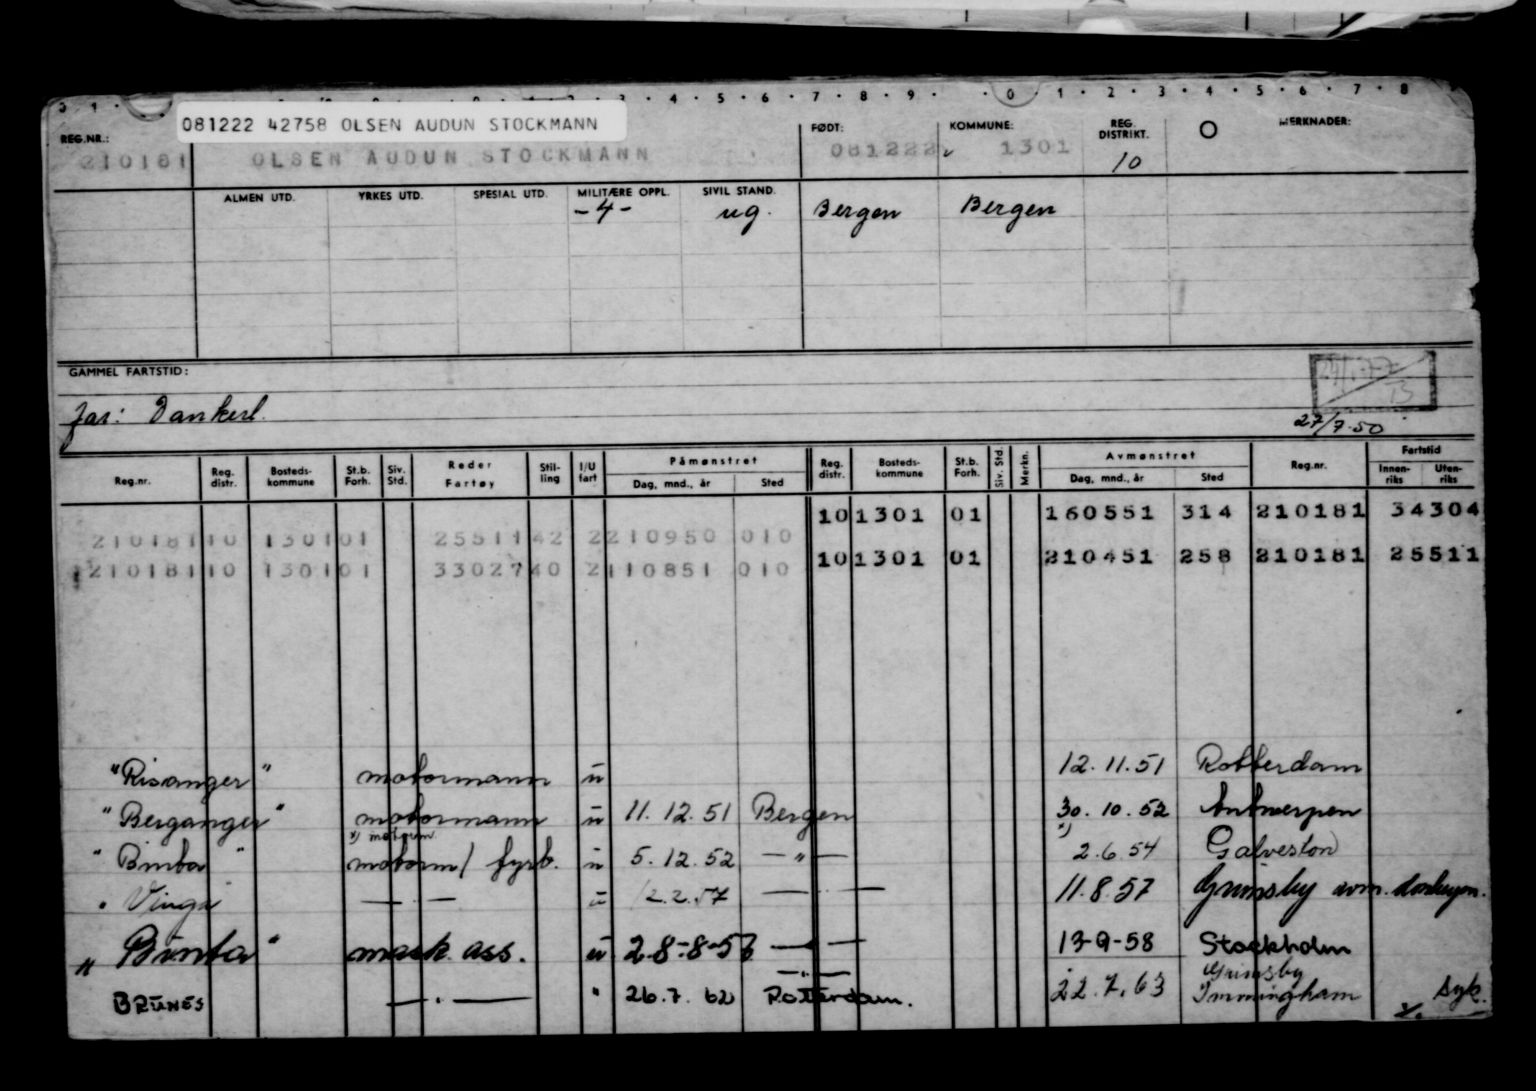 0 1 · 3 · 4 · 5 · 6 · 7 · 8 · 9 · · 0 · 1 · 2 · 3 · 4 · 5 · 6 · 7 · 8
081222 42758 OLSEN AUDUN STOCKMANN
REG.NR.: FØDT: KOMMUNE: REG. DISTRIKT. O MERKNADER:
210181 OLSEN AUDUN STOCKMANN 081222 1301 10
ALMEN UTD. YRKES UTD. SPESIAL UTD. MILITÆRE OPPL. SIVIL STAND.
-4- ug. Bergen Bergen
GAMMEL FARTSTID:
far: Dankerl.
27/7.50
Reg.nr. Reg. distr. Bosteds- kommune St.b. Forh. Siv. Std. Reder Fartøy Stil- ling I/U fart Påmønstret Dag, mnd., år Sted Reg. distr. Bosteds- kommune St.b. Forh. Siv. Std. Merkn. Avmønstret Dag, mnd., år Sted Reg.nr. Fartstid Innen- riks Uten- riks
10 1301 01 160551 314 210181 34304
210181 10 1301 01 25511 42 2 210950 010
10 1301 01 210451 258 210181 25511
210181 10 1301 01 33027 40 2 110851 010
"Risanger" motormann u 12.11.51 Rotterdam
"Berganger" motormann u 11.12.51 Bergen 30.10.52 Antwerpen
x) motorm x)
"Binta" motorm/ fyrb. u 5.12.52 — " — 2.6.54 Galveston
" Vinga — — u 12.2.57 — — 11.8.57 Grimsby avm. donkeym.
" Binta" mask. ass. u 28-8-58 — — 13-9-58 Stockholm
— " — Grimsby
BRUNES — " — " 26.7.62 Rotterdam. 22.7.63 Immingham syk.